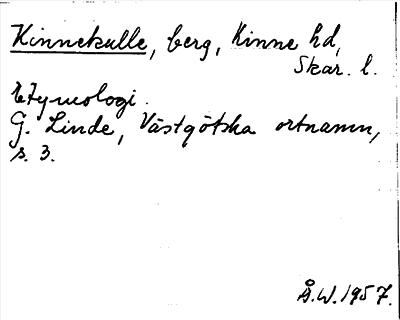 Kinnekulle, berg, Kinne hd,
Skar. l.
Etymologi.
G. Linde, Västgötska ortnamn,
s. 3.
Å.W. 1957.